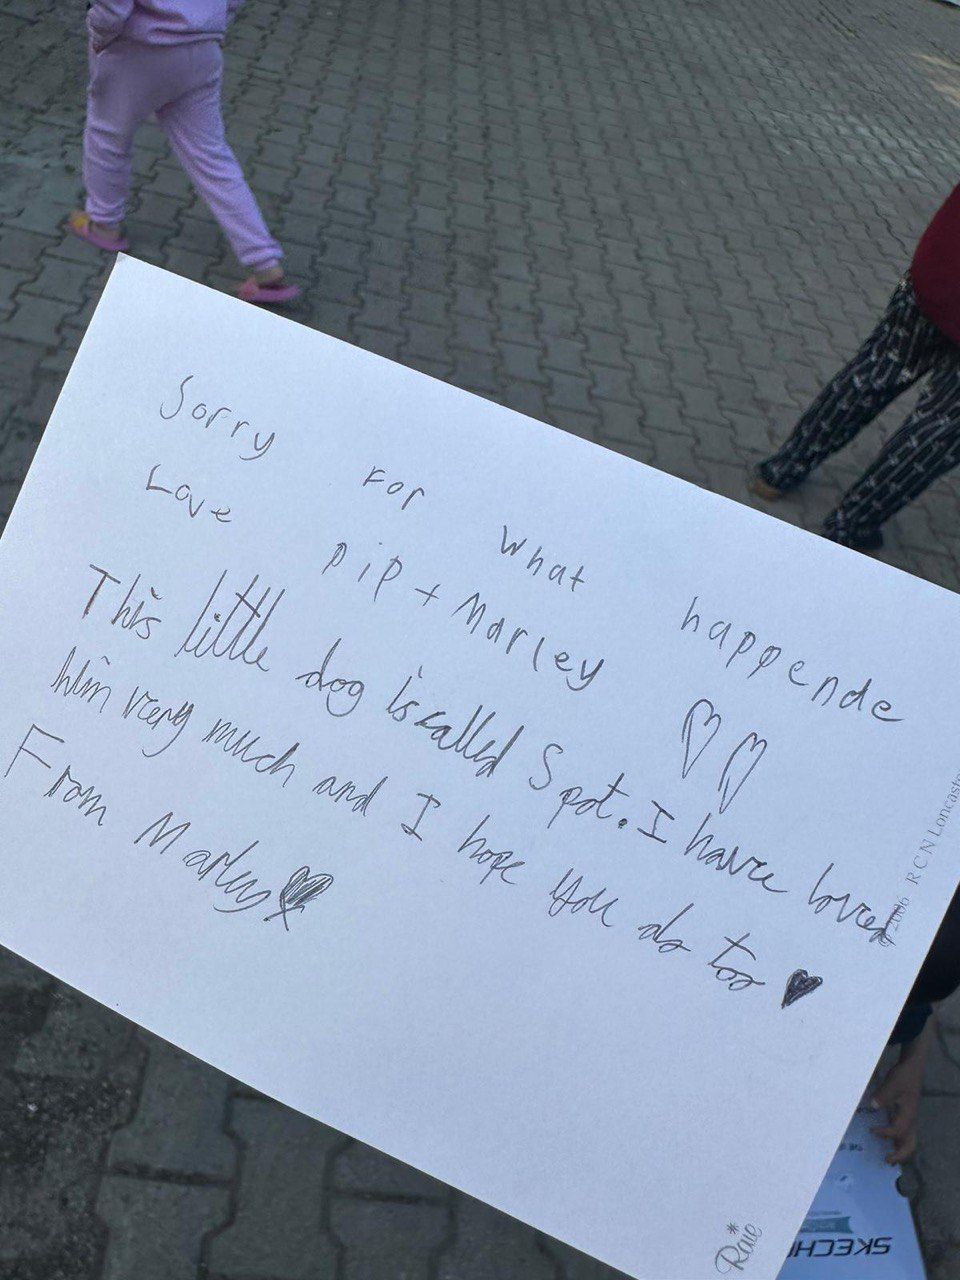 Sorry For what happende
Love pip + Marley
This little dog is called Spot. I have loved
him very much and I hope you do too
From Marley
© 2006 R C N Loncaster
Raie
SKECH